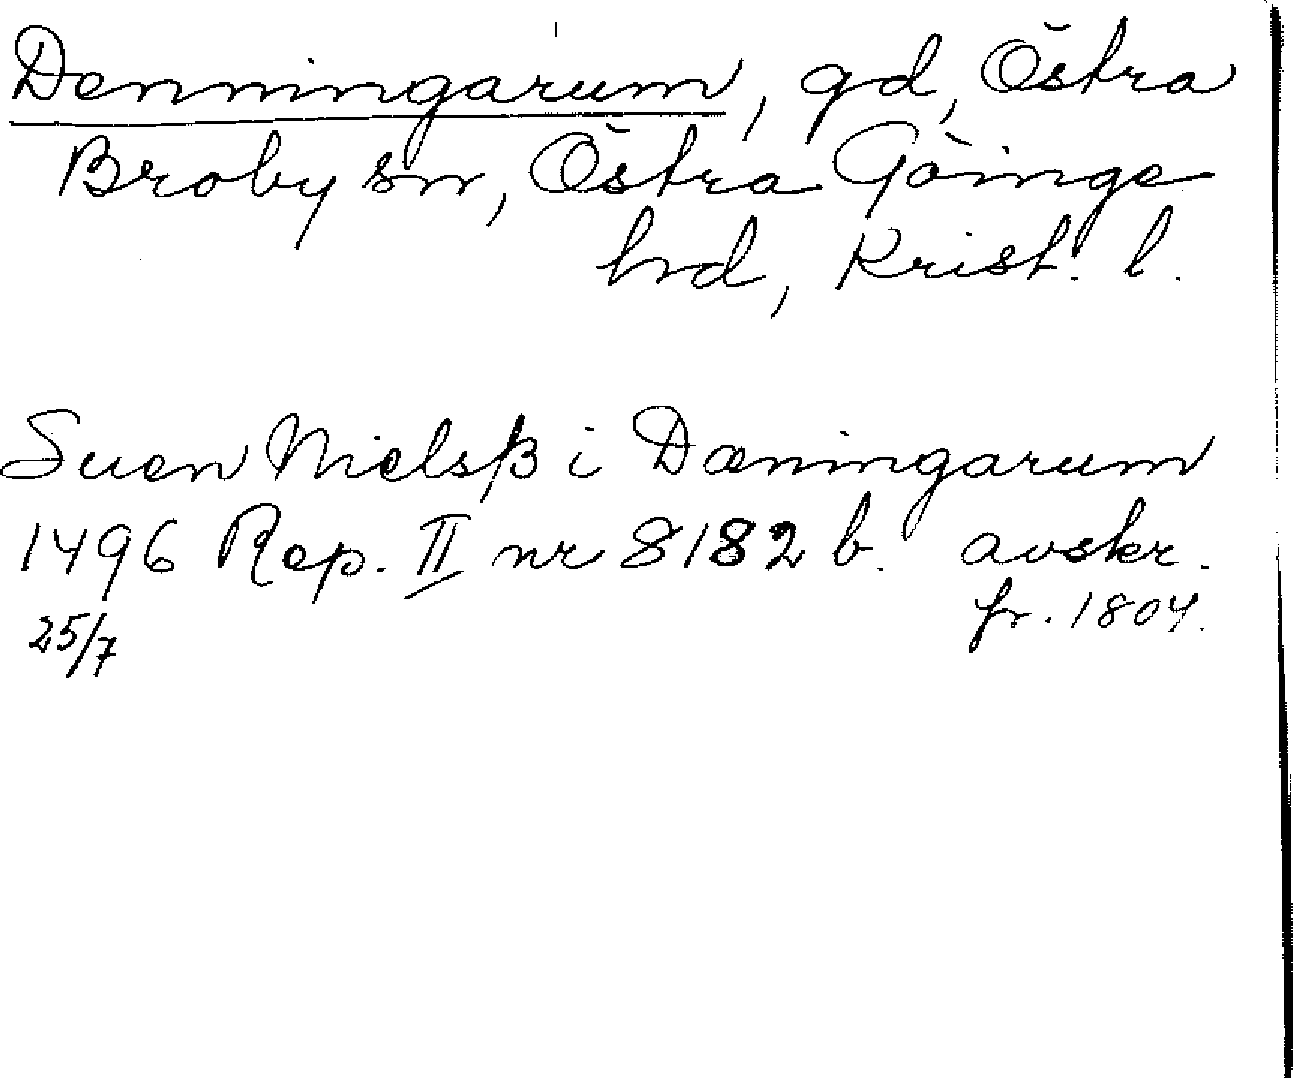 Denningarum, gd, Östra
Broby sn, Östra Göinge
hd, Krist. l.
Suen Nielsß i Dæningarum
1496 Rep. II nr 8182 b. avskr.
25/7 fr. 1804.